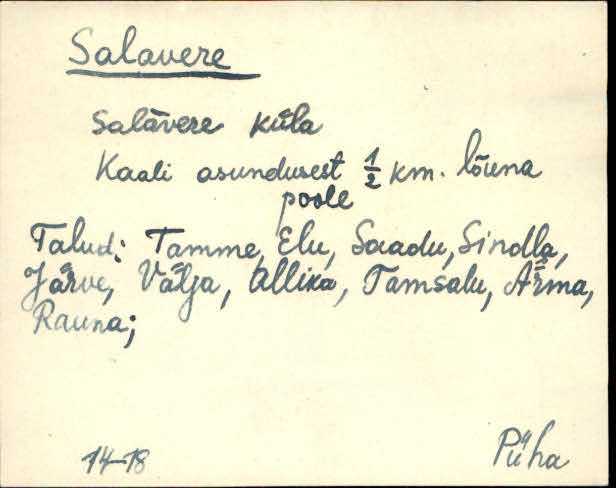 Salavere
Salāvere küla
Kaali asundusest ½ km. lõuna
poole
Talud: Tamme, Elu, Saadu, Sindla,
Järve, Välja, Allika, Tamsalu, Ärma,
Rauna;
14-18 Püha